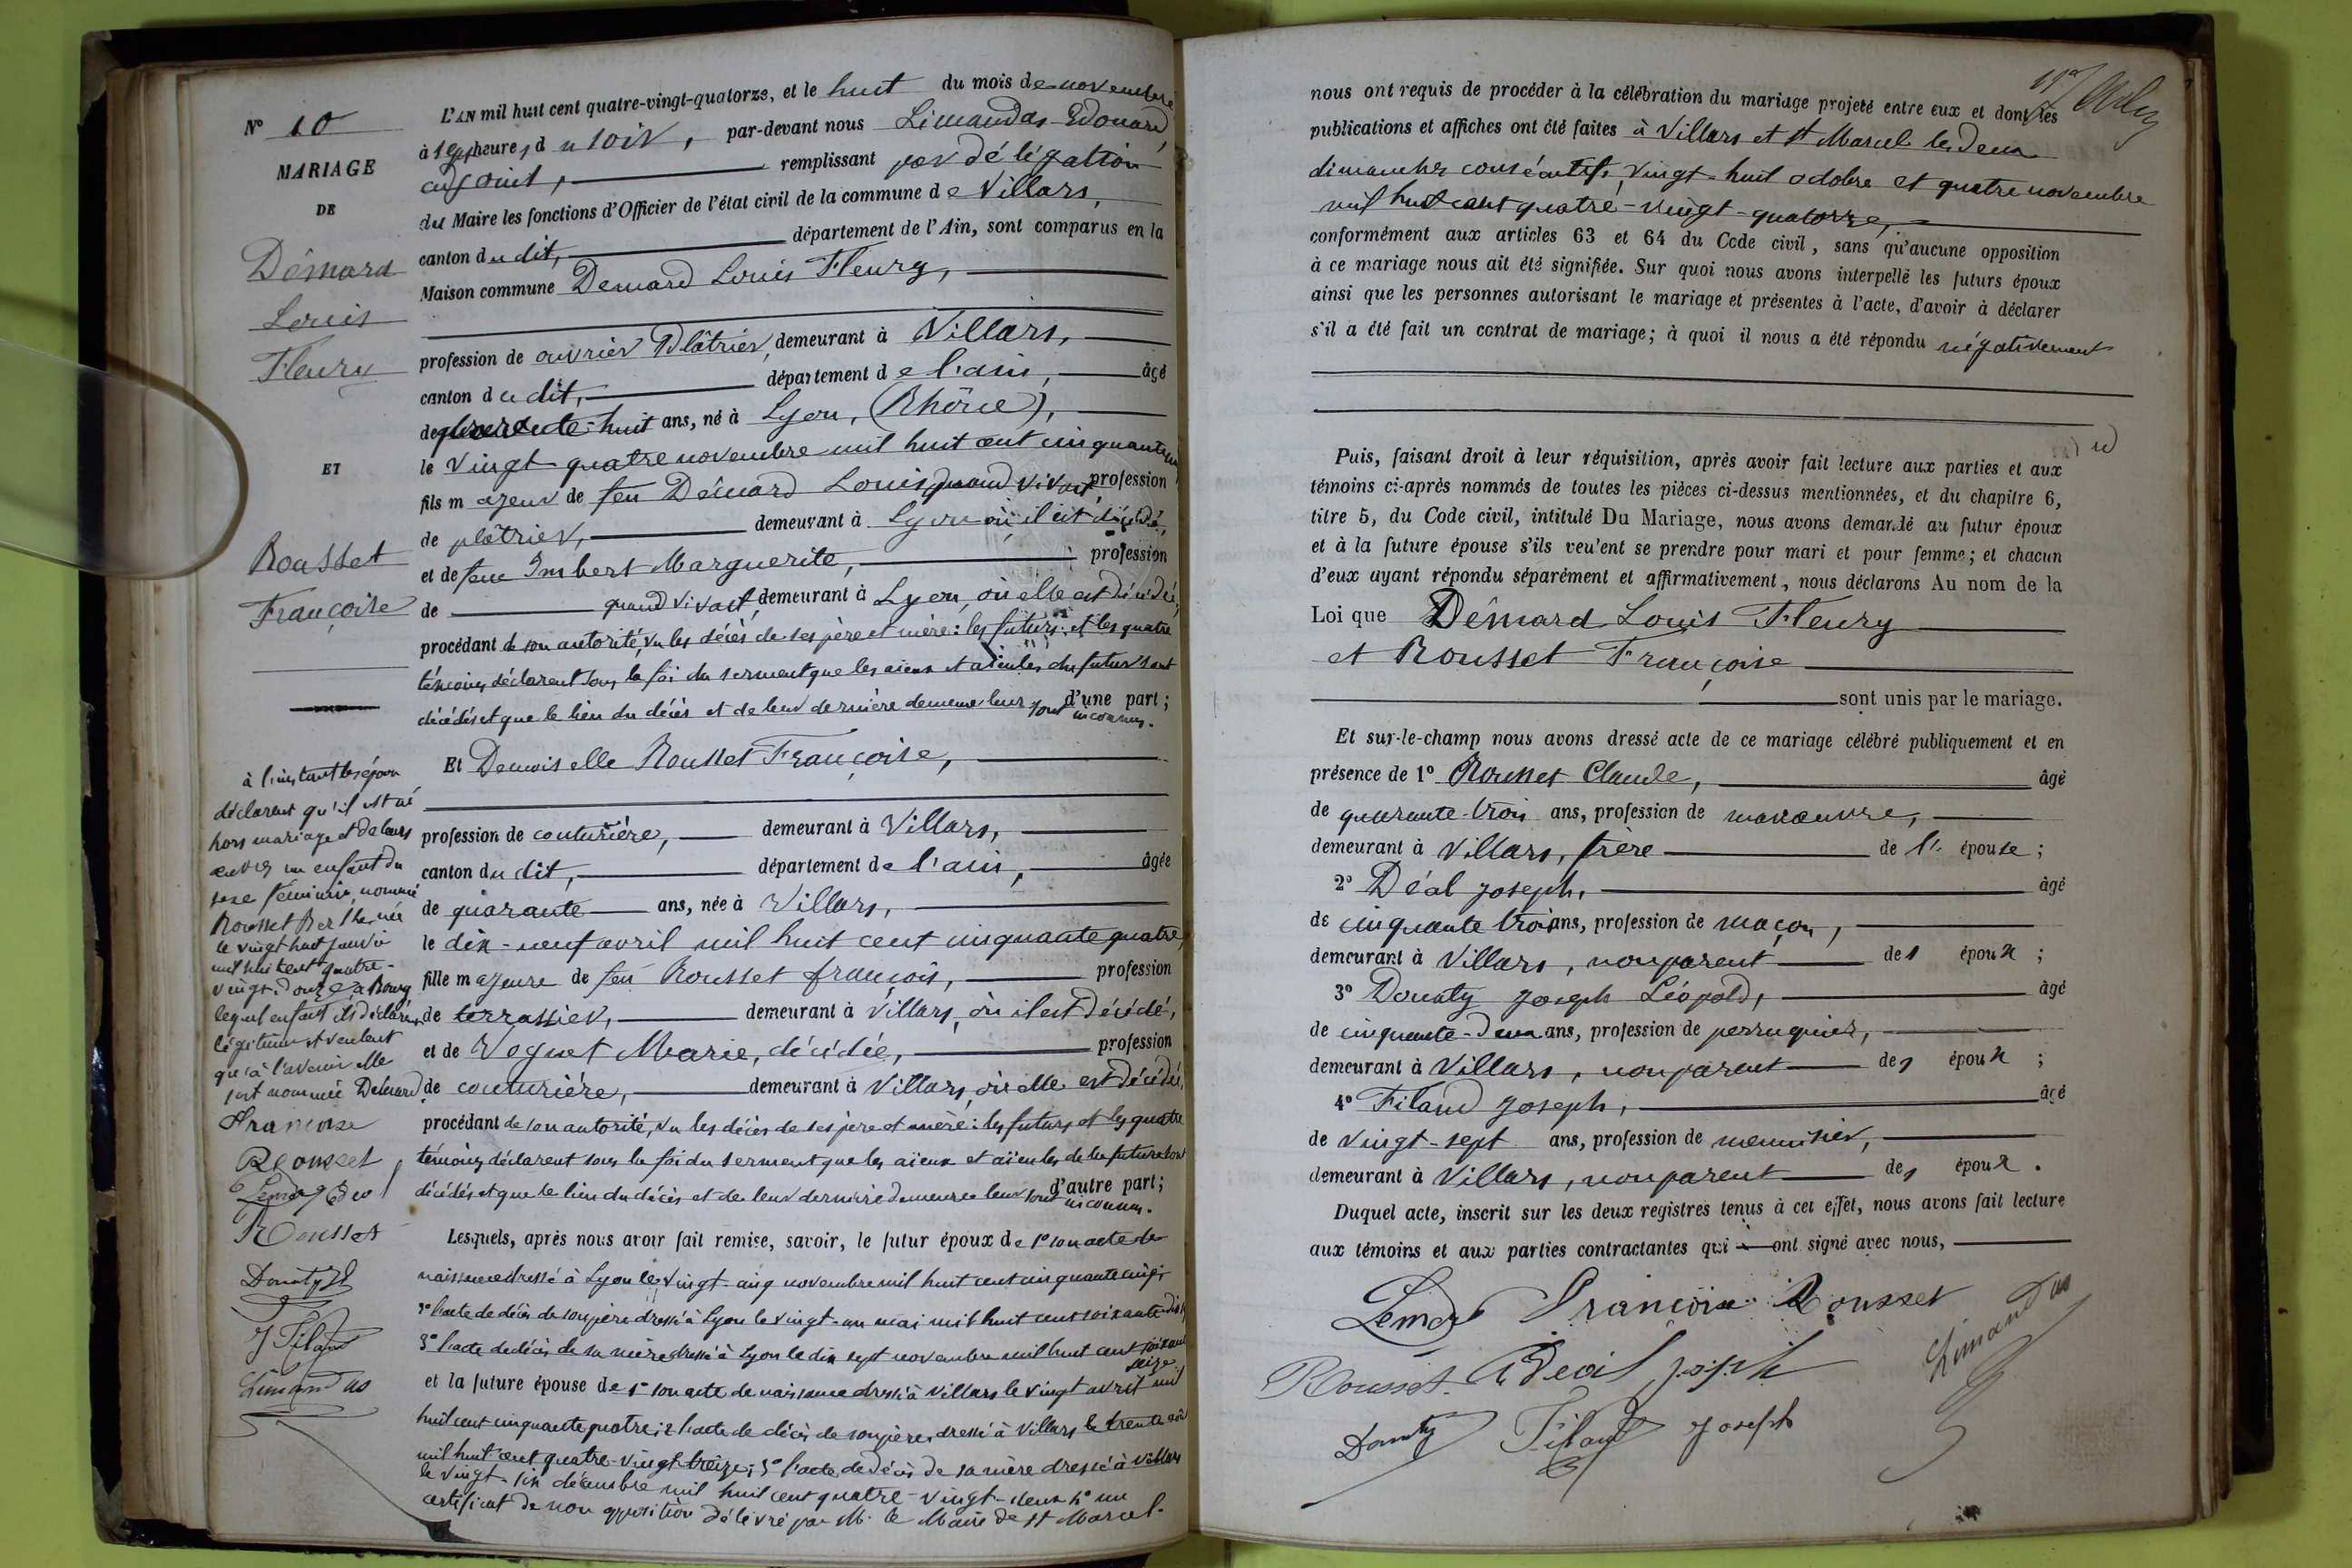 N° 10
MARIAGE
DE
Démard
Louis
Fleury
ET
Rousset
Françoise
L'AN mil huit cent quatre-vingt-quatorze, et le huit du mois de novembre
à heure, du soir, par-devant nous Limandas Edouard,
adjoint, remplissant par délégation
du Maire les fonctions d'Officier de l'état civil de la commune de Villars,
canton du dit, département de l'Ain, sont comparus en la
Maison commune Demard Louis Fleury,
profession de ouvrier Plâtrier, demeurant à Villars,
canton du dit, département de l'ain, âgé
de huit ans, né à Lyon, (Rhône),
le vingt-quatre novembre mil huit cent cinquante
fils majeur de feu Démard Louis quand vivait profession
de plâtrier, demeurant à Lyon où il est décédé,
et de feue Imbert Marguerite, profession
de quand vivait, demeurant à Lyon, où elle est décédée,
procédant de son autorité, vu les décès de ses père et mère: les futurs et les quatre
témoins déclarent sous la foi du serment que les aïeux et aïeules du futur sont
décédés et que le lieu du décès et de leur dernière demeure leur sont inconnus. d'une part;
Et Demoiselle Rousset Françoise,
profession de couturière, demeurant à Villars,
canton du dit, département de l'ain, âgée
de quarante ans, née à Villars,
le dix-neuf avril mil huit cent cinquante quatre,
fille majeure de feu Rousset françois, profession
de terrassier, demeurant à Villars, où il est décédé,
et de Voguet Marie, décédée, profession
de couturière, demeurant à Villars, où elle est décédée,
procédant de son autorité, vu les décès de ses père et mère: les futurs et les quatre
témoins déclarent sous la foi du serment que les aïeux et aïeules de la future sont
décédés et que le lieu du décès et de leur dernière demeure leur sont inconnus. d'autre part;
Lesquels, après nous avoir fait remise, savoir, le futur époux de 1° son acte de
naissance dressé à Lyon le vingt-cinq novembre mil huit cent cinquante cinq;
2° l'acte de décès de son père dressé à Lyon le vingt-un mai mil huit cent soixante
3° l'acte de décès de sa mère dressé à Lyon le dix sept novembre mil huit cent soixante seize
et la future épouse de 1° son acte de naissance dressé à Villars le vingt avril mil
huit cent cinquante quatre; 2° l'acte de décès de son père dressé à Villars le trente
mil huit cent quatre-vingt-treize; 3° l'acte de décès de sa mère dressé à Villars
le vingt-six décembre mil huit cent quatre-vingt-deux 4° un
certificat de non opposition délivré par M. le Maire de St Marcel.
à l'instant les époux
déclarent qu'il est né
hors mariage et de leurs
œuvres un enfant du
sexe féminin, nommé
Rousset Berthe, née
le vingt huit janvier
mil huit cent quatre-
vingt-douze à Bourg
lequel enfant ils déclarent
légitimer et veulent
qu'à l'avenir elle
soit nommée Demard.
Françoise
Rousset
Rousset
Donaty JL
J Filand
Limandas
nous ont requis de procéder à la célébration du mariage projeté entre eux et dont les
publications et affiches ont été faites à Villars et St Marcel les deux
dimanches consécutifs, vingt-huit octobre et quatre novembre
mil huit cent quatre-vingt-quatorze,
conformément aux articles 63 et 64 du Code civil, sans qu'aucune opposition
à ce mariage nous ait été signifiée. Sur quoi nous avons interpellé les futurs époux
ainsi que les personnes autorisant le mariage et présentes à l'acte, d'avoir à déclarer
s'il a été fait un contrat de mariage; à quoi il nous a été répondu négativement
Puis, faisant droit à leur réquisition, après avoir fait lecture aux parties et aux
témoins ci-après nommés de toutes les pièces ci-dessus mentionnées, et du chapitre 6,
titre 5, du Code civil, intitulé Du Mariage, nous avons demandé au futur époux
et à la future épouse s'ils veulent se prendre pour mari et pour femme; et chacun
d'eux ayant répondu séparément et affirmativement, nous déclarons Au nom de la
Loi que Démard Louis Fleury
et Rousset Françoise
sont unis par le mariage.
Et sur-le-champ nous avons dressé acte de ce mariage célébré publiquement et en
présence de 1° Rousset Claude, âgé
de quarante-trois ans, profession de manœuvre,
demeurant à Villars, frère de l' épouse;
2° Déal Joseph, âgé
de cinquante trois ans, profession de maçon,
demeurant à Villars, non parent des époux;
3° Donaty Joseph Léopold, âgé
de cinquante-deux ans, profession de perruquier,
demeurant à Villars, non parent des époux;
4° Filand Joseph, âgé
de vingt-sept ans, profession de menuisier,
demeurant à Villars, non parent des époux.
Duquel acte, inscrit sur les deux registres tenus à cet effet, nous avons fait lecture
aux témoins et aux parties contractantes qui ont signé avec nous,
Françoise Rousset
Limandas
Rousset Deal joseph
Donaty Filand Joseph